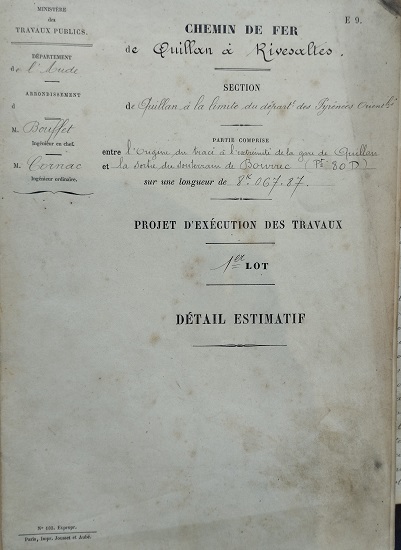 MINISTÈRE
des
TRAVAUX PUBLICS.
DÉPARTEMENT
de l'Aude
ARRONDISSEMENT
d
M. Bouffet
Ingénieur en chef.
M. Cornac
Ingénieur ordinaire.
E 9.
CHEMIN DE FER
de Quillan à Rivesaltes.
SECTION
de Quillan à la limite du départt des Pyrénées Orientles
PARTIE COMPRISE
entre l'Origine du tracé à l'extrémité de la gare de Quillan
et la sortie du souterrain de Bourrec (Pt 80 D)
sur une longueur de 8k.067.87.
PROJET D'EXÉCUTION DES TRAVAUX
1er LOT
DÉTAIL ESTIMATIF
Paris, Impr. Jousset et Aubé.